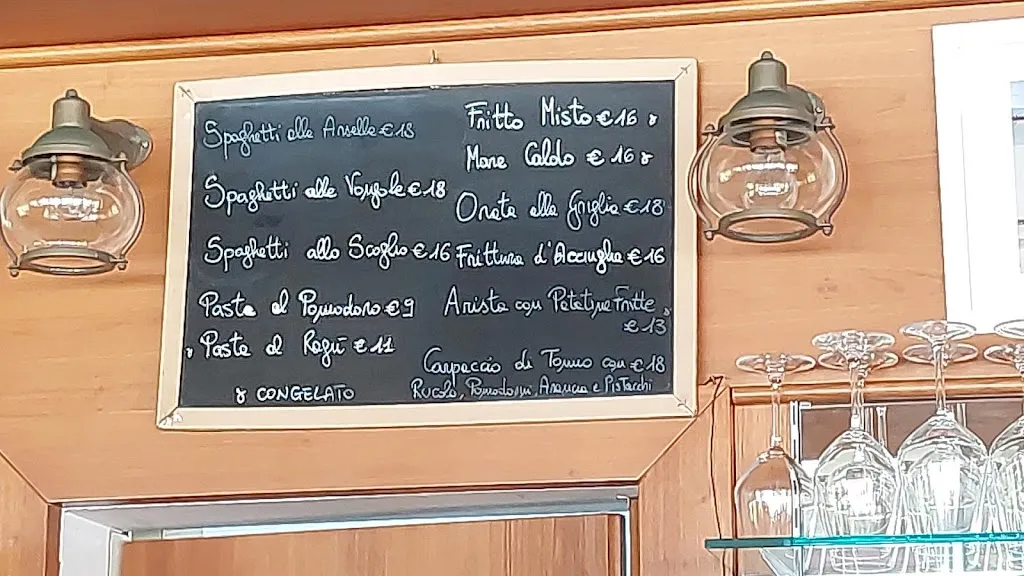 Spaghetti alle Arselle €18
Spaghetti alle Vongole €18
Spaghetti allo Scoglio €16
Pasta al Pomodoro €9
Pasta al Ragù €11
CONGELATO
Fritto Misto €16
Mare Caldo €16
Orata alla Griglia €18
Frittura d'Acciughe €16
Arista con Patatine Fritte
€13
Carpaccio di Tonno con €18
Rucola, Pomodorini, Arancia e Pistacchi